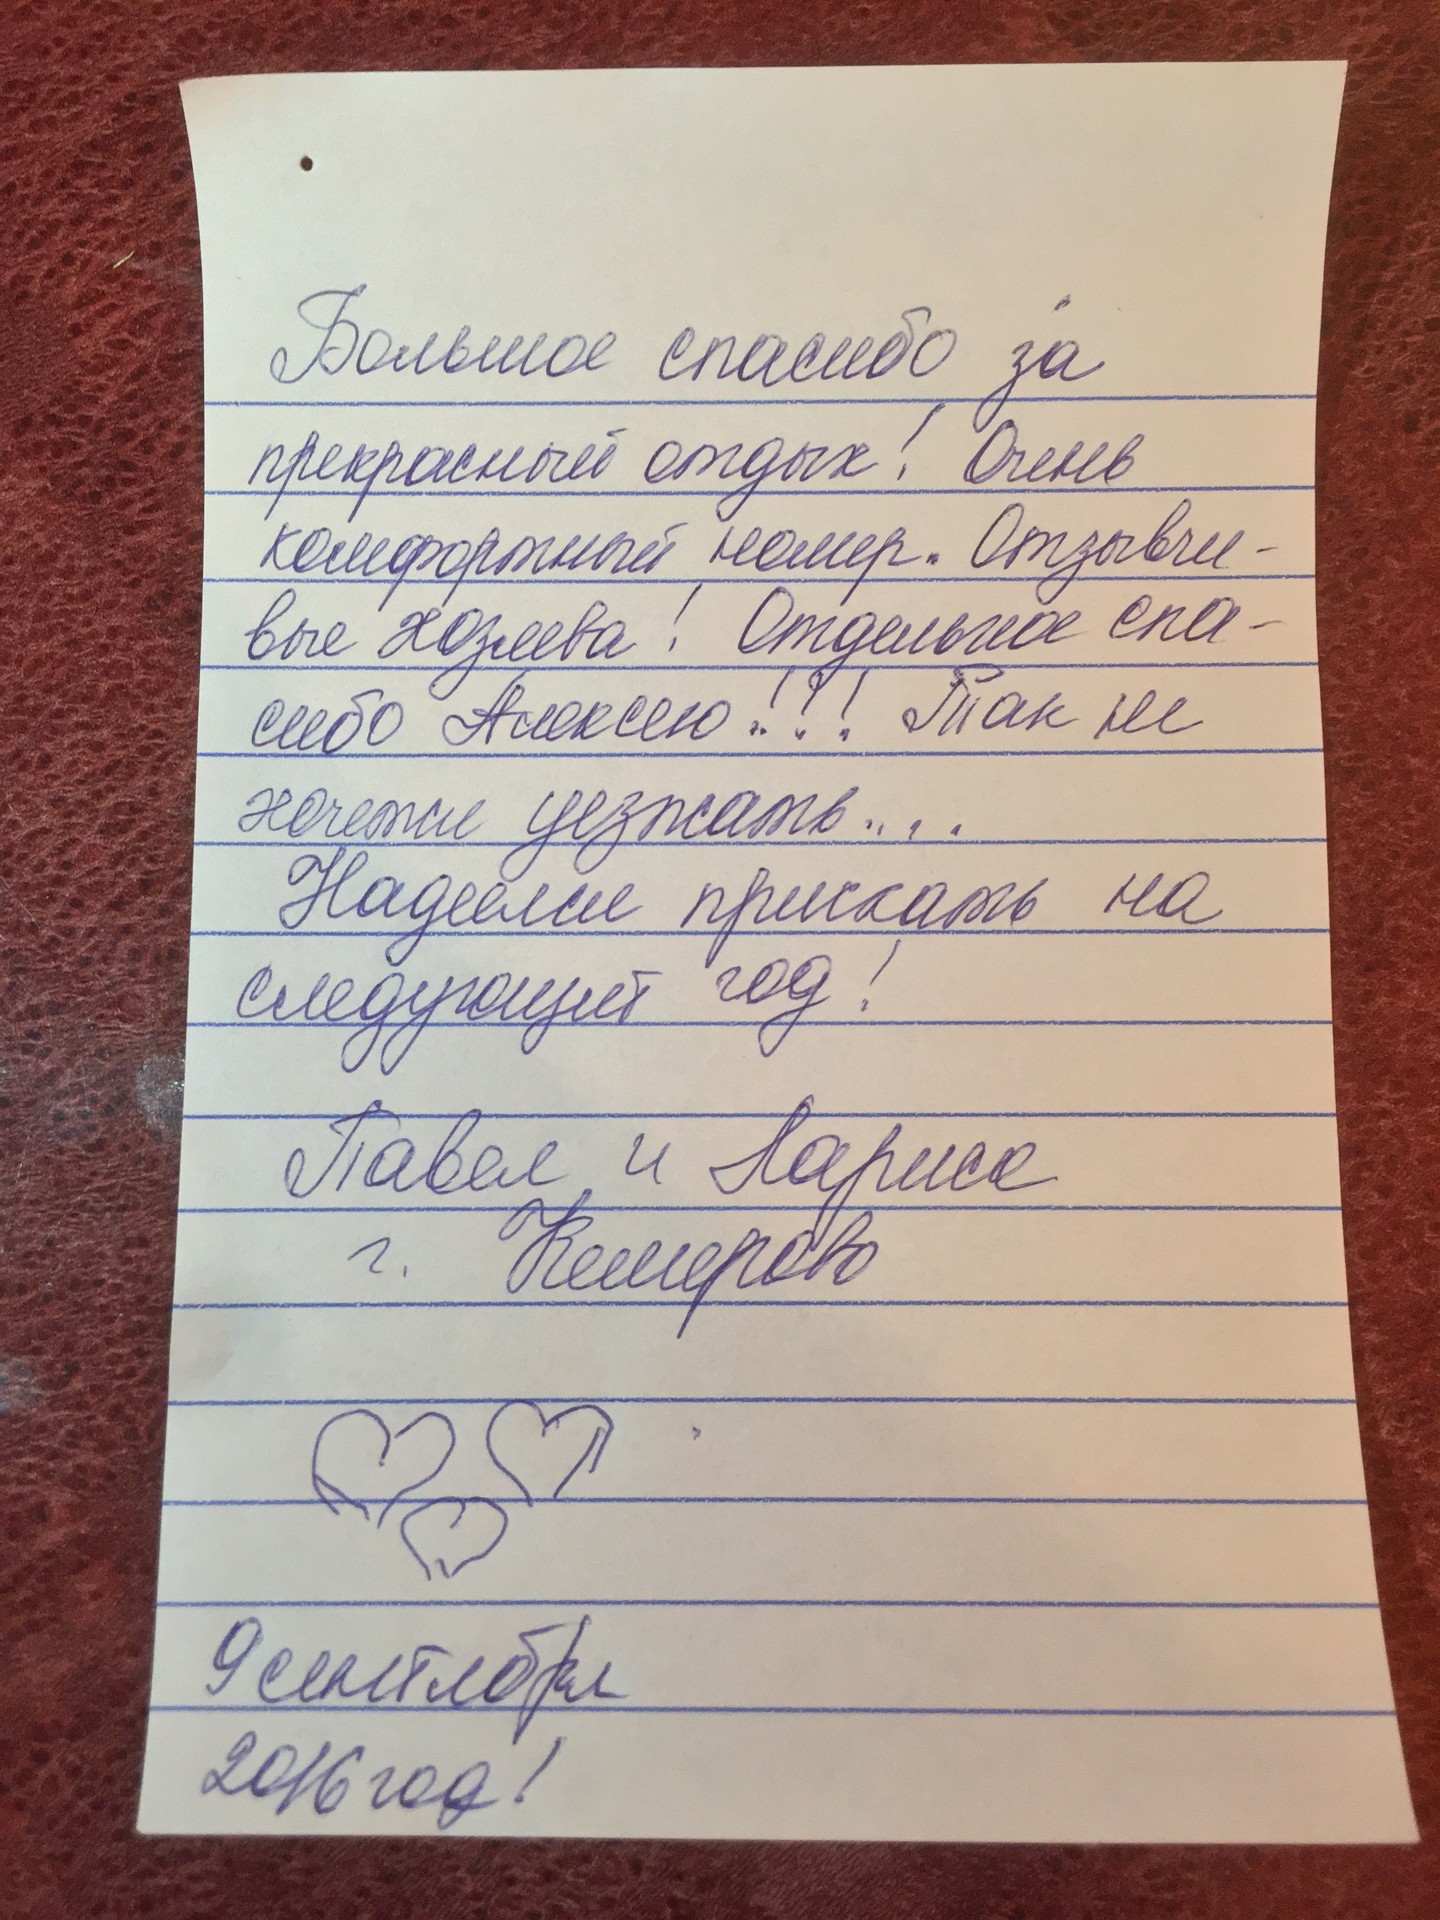 Большое спасибо за
прекрасный отдых! Очень
комфортный номер. Отзывчи-
вые хозяева! Отдельное спа-
сибо Алексею!!! Так не
хочется уезжать...
Надеемся приехать на
следующий год!
Павел и Лариса
г. Кемерово
9 сентября
2016 год!